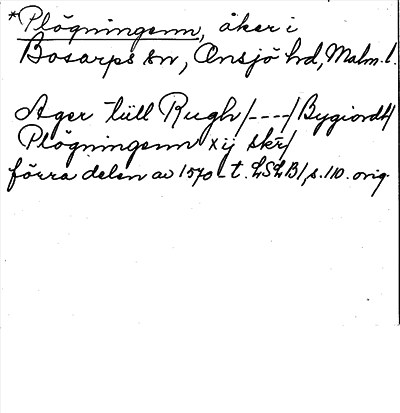 *Plögningenn, åker i
Bosarps sn, Onsjö hd, Malm. l.
Ager tüll Rugh/----/Bygiordt/
Plögningenn xij skr/
förra delen av 1570-t. LSLB1, s. 110. orig.